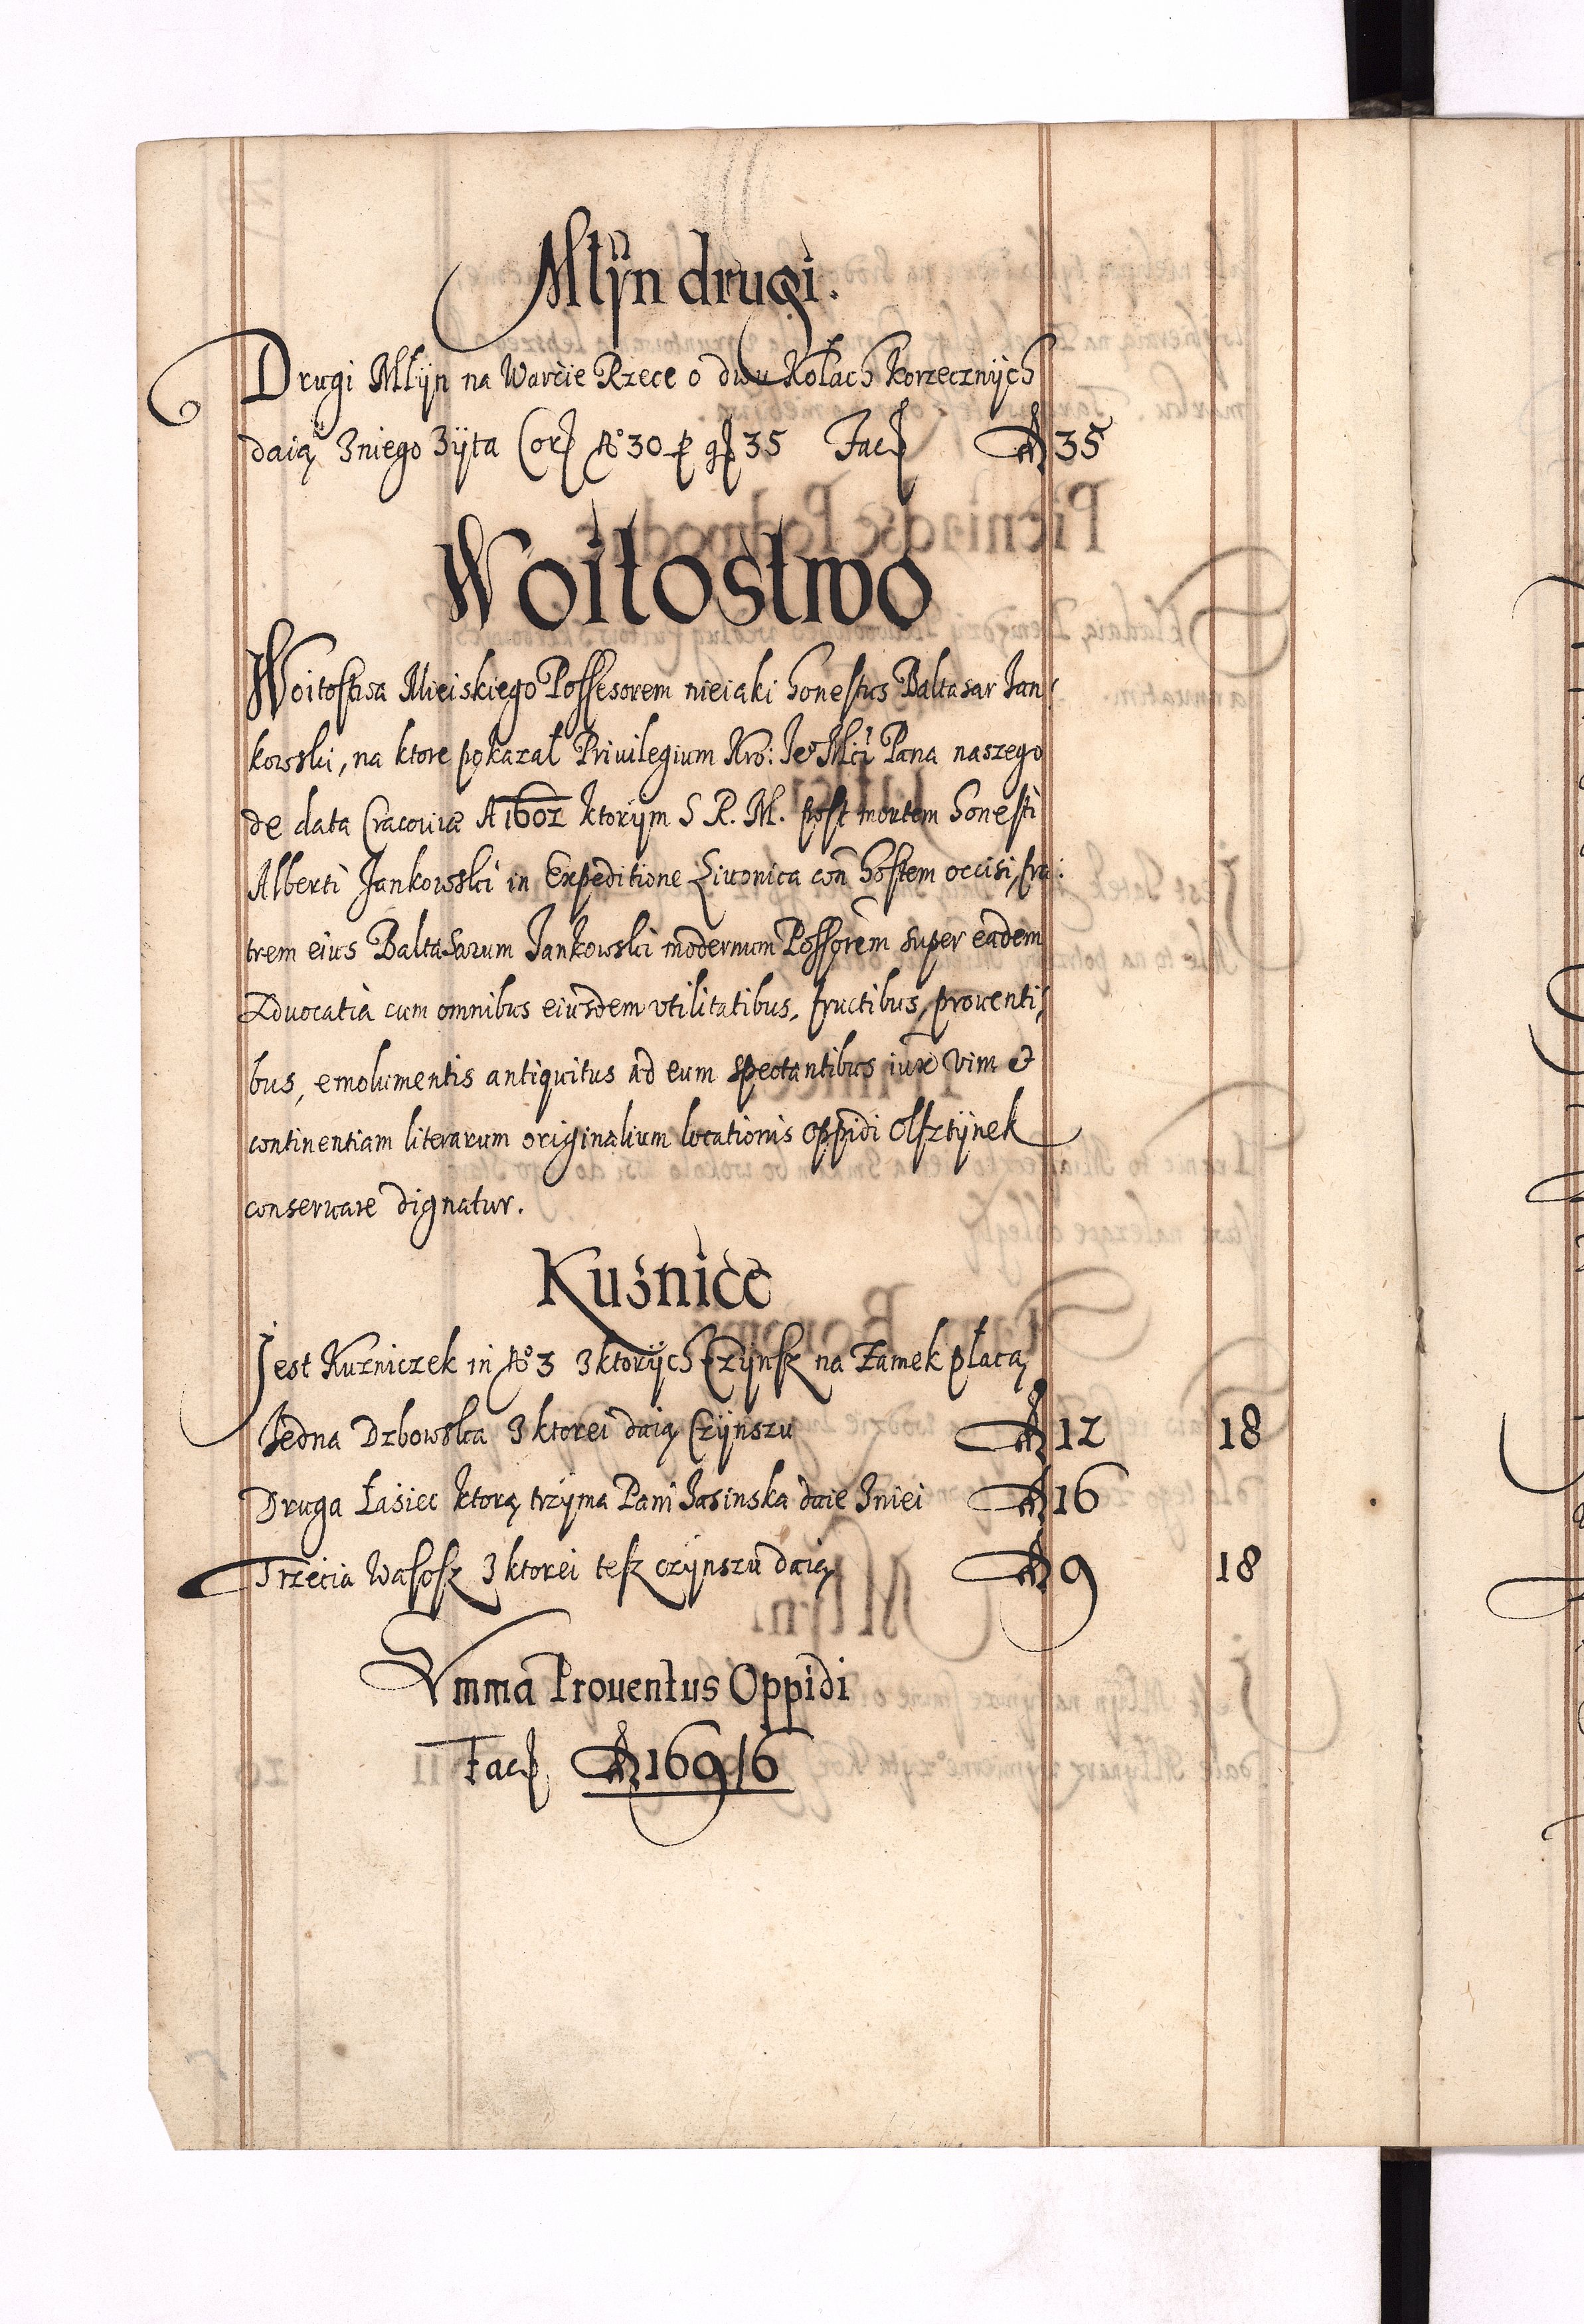 Młÿn drugi.
Drugi Młÿn na Warcie Rzece o dwu Kołach Korzecznÿch
daią 3niego 3ÿta Cor No 30 p gr 35 Fac fl 35
Woitostwo
Woitostwa Mieiskiego Possesorem nieiaki honestus Baltasar Jan:
kowski, na ktore pokazał Priuilegium Kro: Je° Mci Pana naszego
de data Cracoviæ A 1602 ktorÿm S R. M. post mortem honesti
Alberti Jankowski in Expeditione Liuonica con hostem occisi, fra:
trem eius Baltasarum Jankowski modernum Possorem super eadem
Aduocatia cum omnibus eiusdem vtilitatibus, fructibus, prouenti:
bus, emolumentis antiquitus ad eum spectantibus iux vim et
continentiam literarum originalium locationis oppidi Olsztÿnek
conseruare dignatur.
Kuźnice
Jest Kuzniczek in No 3 3ktorÿch Czÿnsz na Zamek płacą
Jedna Dzbowska 3 ktorei daią Czÿnszu fl 12 18
Druga Łasiec ktorą trzÿma Pani Jasinska daie 3niei fl 16
Trzecia Wasosz 3 ktorei tesz czÿnszu daią fl 9 18
Summa Prouentus Oppidi
Fac fl 169/6